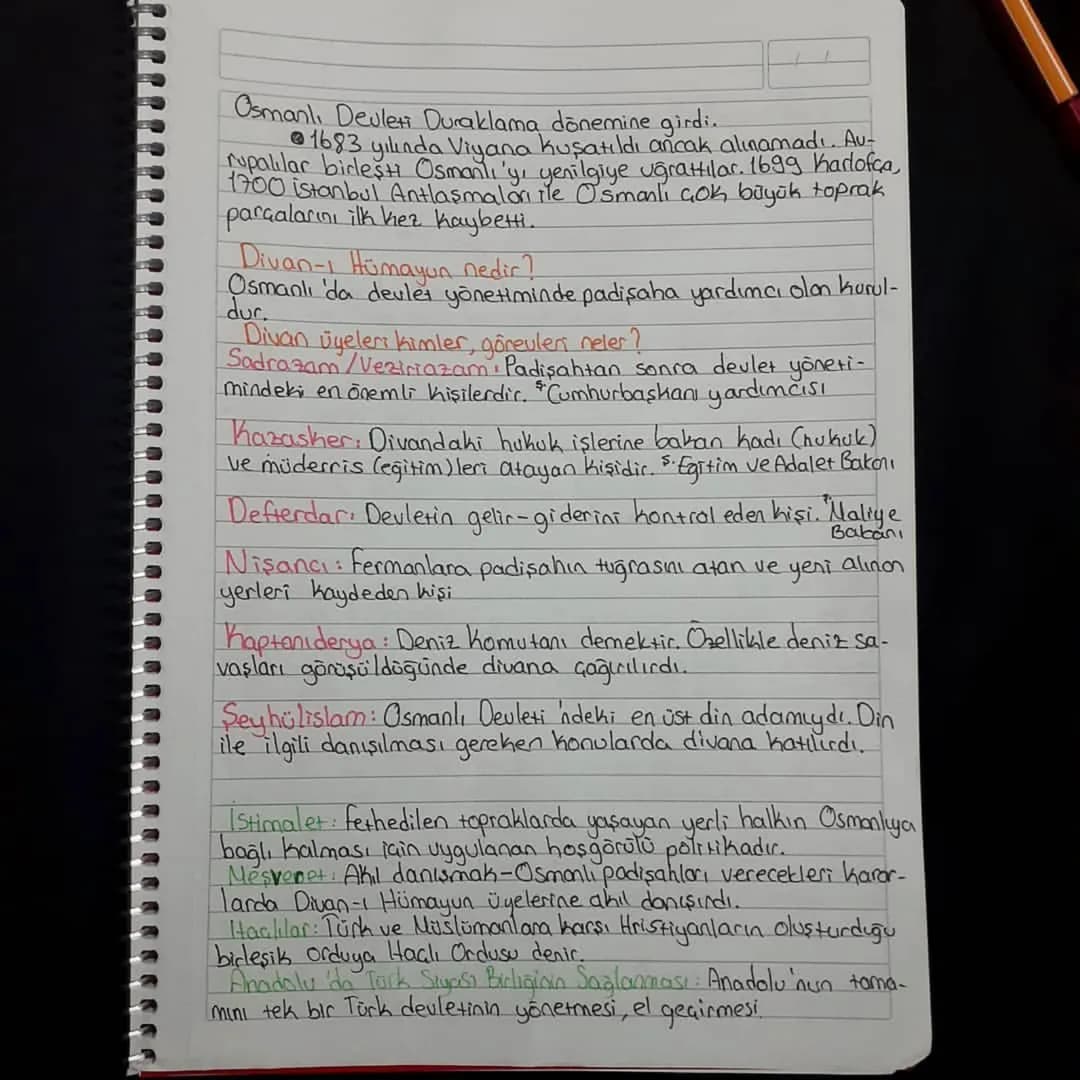 Osmanlı Devleti Duraklama dönemine girdi.
1683 yılında Viyana kuşatıldı ancak alınamadı. Av-
rupalılar birleşti Osmanlı'yı yenilgiye uğrattılar. 1699 Karlofça,
1700 İstanbul Antlaşmaları ile Osmanlı çok büyük toprak
parçalarını ilk kez kaybetti.
Divan-ı Hümayun nedir?
Osmanlı'da devlet yönetiminde padişaha yardımcı olan kurul-
dur.
Divan üyeleri kimler, görevleri neler?
Sadrazam/Veziriazam: Padişahtan sonra devlet yöneti-
mindeki en önemli kişilerdir. Cumhurbaşkanı yardımcısı
Kazasker: Divandaki hukuk işlerine bakan kadı (hukuk)
ve müderris (eğitim)leri atayan kişidir. Eğitim ve Adalet Bakanı
Defterdar: Devletin gelir-giderini kontrol eden kişi. Maliye
Bakanı
Nişancı: Fermanlara padişahın tuğrasını atan ve yeni alınan
yerleri kaydeden kişi
Kaptanıderya: Deniz komutanı demektir. Özellikle deniz sa-
vaşları görüşüldüğünde divana çağırılırdı.
Şeyhülislam: Osmanlı Devleti'ndeki en üst din adamıydı. Din
ile ilgili danışılması gereken konularda divana katılırdı.
İstimalet: fethedilen topraklarda yaşayan yerli halkın Osmanlıya
bağlı kalması için uygulanan hoşgörülü politikadır.
Meşveret: Akıl danışmak-Osmanlı padişahları verecekleri karar-
larda Divan-ı Hümayun üyelerine akıl danışırdı.
Haçlılar: Türk ve Müslümanlara karşı Hristiyanların oluşturduğu
birleşik orduya Haçlı Ordusu denir.
Anadolu'da Türk Siyasi Birliğinin Sağlanması: Anadolu'nun tama-
mını tek bir Türk devletinin yönetmesi, el geçirmesi.